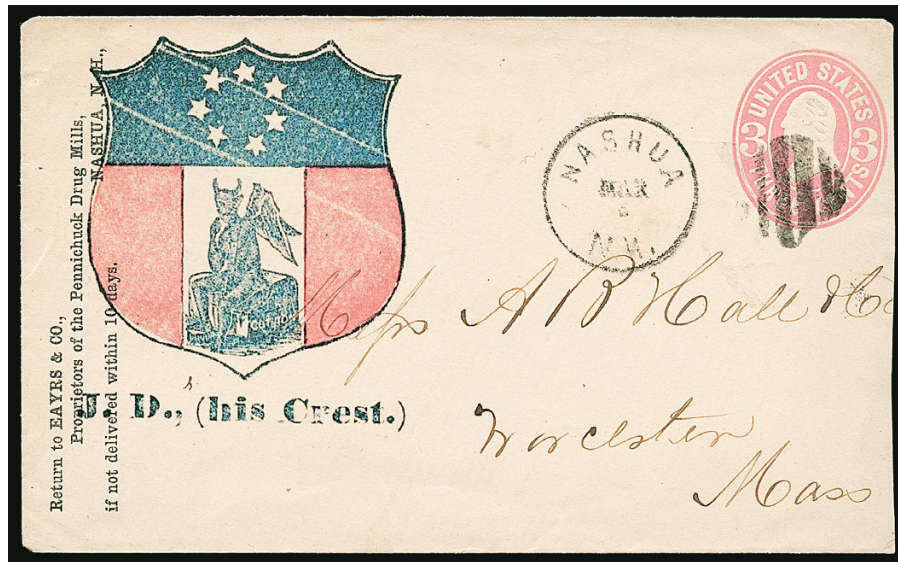 Return to EAYRS & CO.,
Proprietors of the Pennichuck Drug Mills,
NASHUA, N. H.,
if not delivered within 10 days.
J. D.'s, (his Crest.)
NASHUA
MAR
N.H.
UNITED STATES
3 3
Mess A B Hall & Co
Worcester
Mass